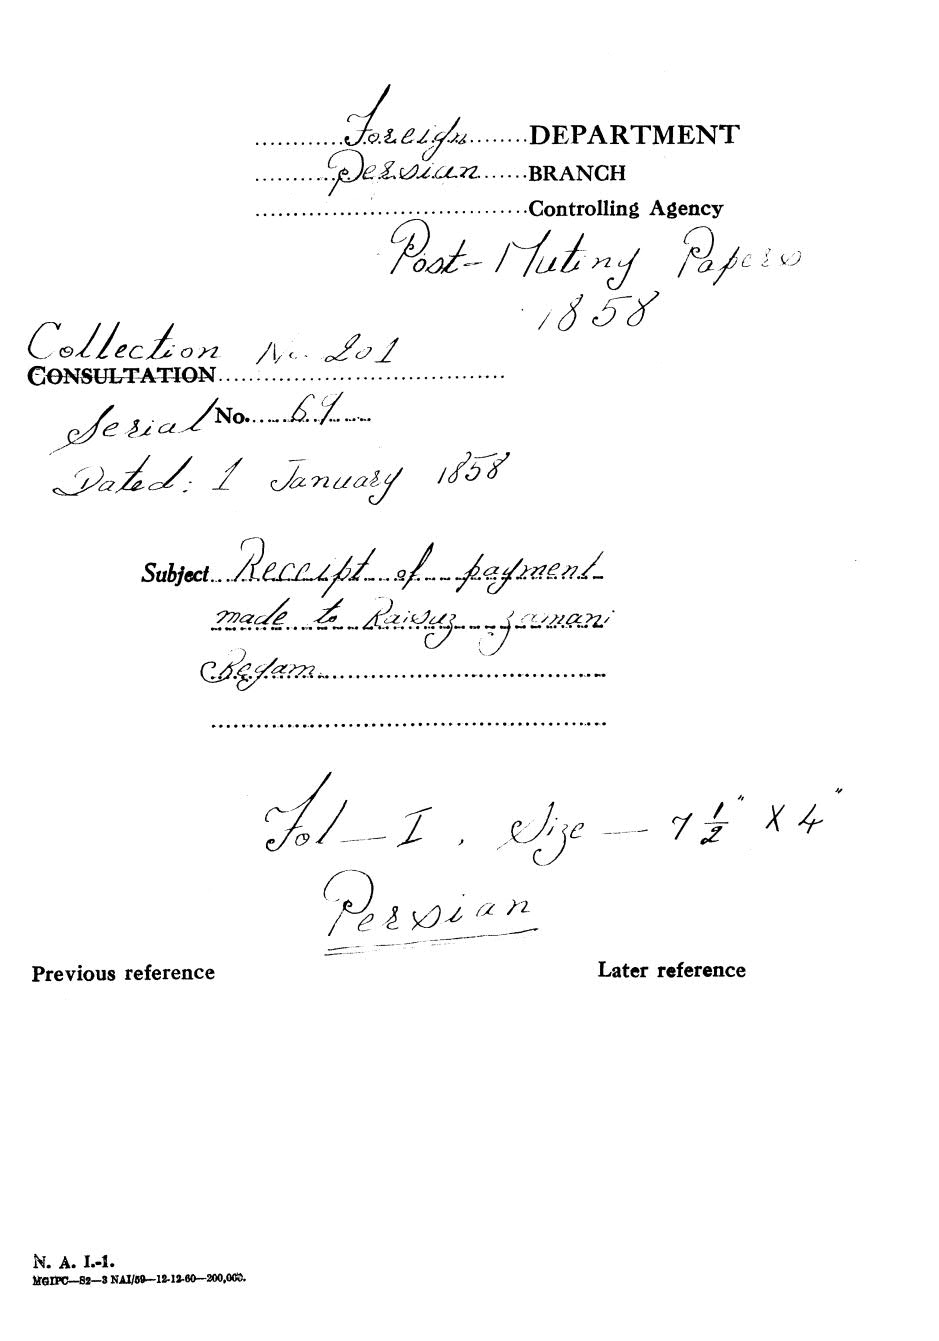 Foreign DEPARTMENT
Persian BRANCH
Controlling Agency
Post-Mutiny Papers
1858
Collection No. 201
CONSULTATION
Serial No. 69
Dated: 1 January 1858
Subject Receipt of payment
made to Raisuz zamani
Begam
Fol — I, Size — 7 1/2" X 4"
Persian
Previous reference Later reference
N. A. I.-1.
MGIPC—S2—3 NAI/59—12-12-60—200,000.